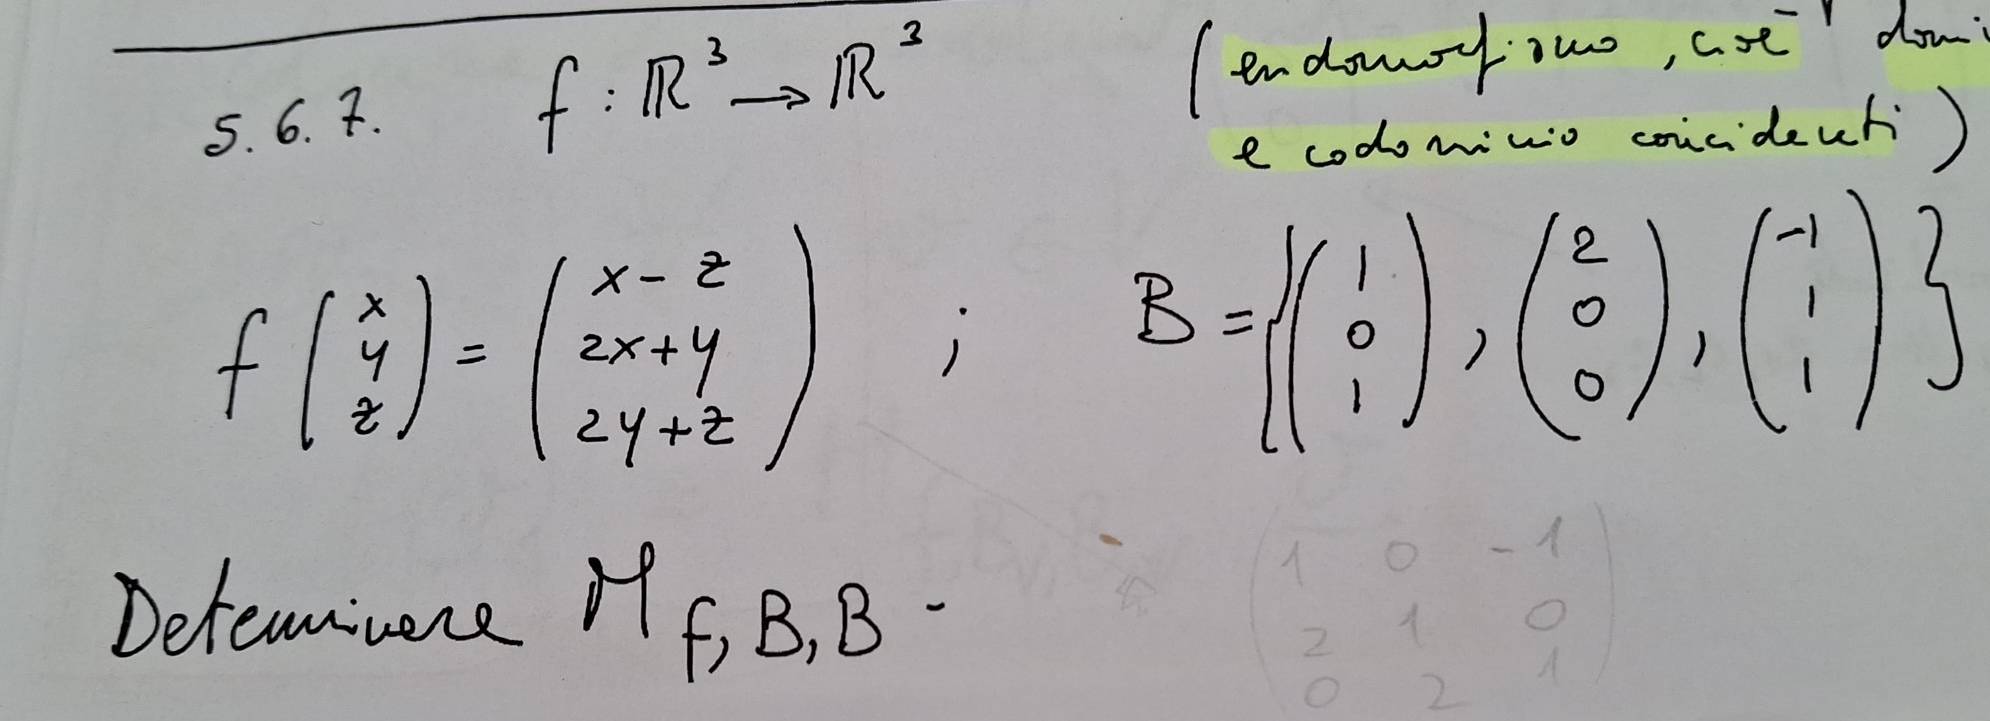 5.6.7. f : ℝ³ → ℝ³ (endomorfismo, cioè domi
e codominio coincidenti)
f (x y z) = (x - z 2x+y 2y+z) ; B = {(1 0 1), (2 0 0), (-1 1 1)}
Determinare M f, B, B -
1 0 -1
2 1 0
0 2 1